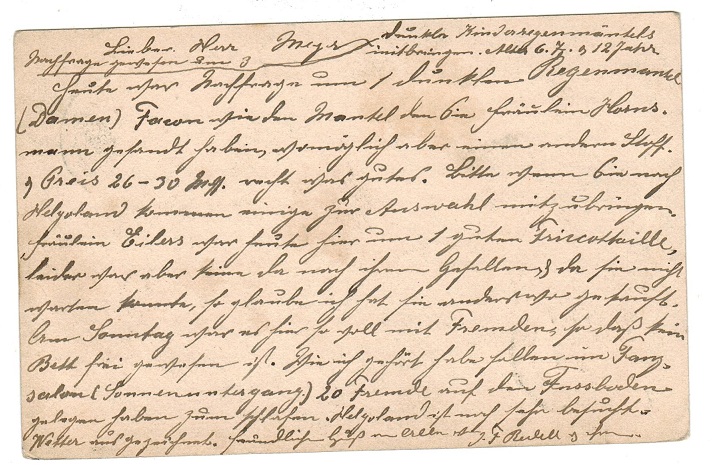 dunkle Kinderregenmäntels
Lieber Herr Meyer mitbringen. Alter 6. 7. & 12 Jahr
Nachfrage gewesen um 3
Heute war Nachfrage um 1 dunklen Regenmantel
(Damen) Facon wie den Mantel den Sie Fräulein Horns-
mann gesandt haben, womöglich aber einen andern Stoff.
& Preis 26-30 M. recht was gutes. Bitte wenn Sie nach
Helgoland kommen einige zur Auswahl mitzubringen.
Fräulein Eilers war heute hier um 1 guten Triccottaille,
leider war aber keine da nach ihrem Gefallen, & da sie nicht
warten konnte, so glaube ich hat sie anderswo gekauft.
Am Sonntag war es hier so voll mit Fremden, so daß kein
Bett frei gewesen ist. Wie ich gehört habe sollen im Tanz-
salon (Sonnenuntergang.) 20 Fremde auf den Fussboden
gelegen haben zum schlafen. Helgoland ist noch sehr besucht.
Wetter ausgezeichnet. freundlichen Gruß J. F.